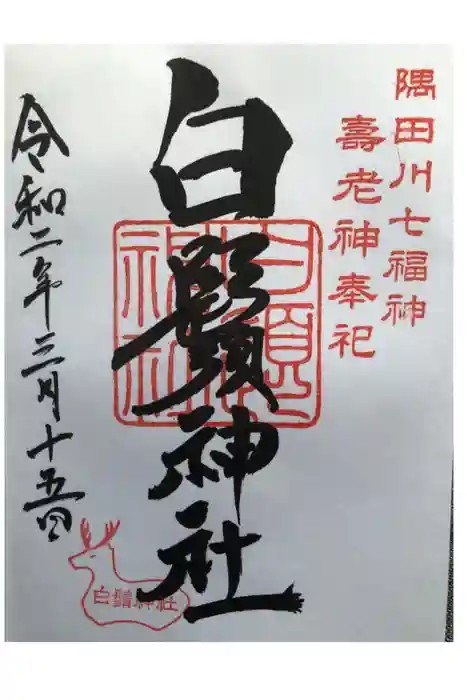 隅田川七福神
壽老神奉祀
白鬚神社
令和二年三月十五日
白鬚神社